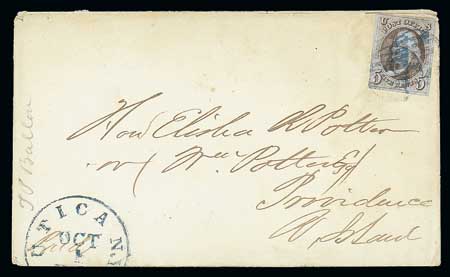 POST OFFICE
5 5
Hon Elisha R Potter
or Wm Potter Esq
Providence
R Island
UTICA N.Y.
OCT